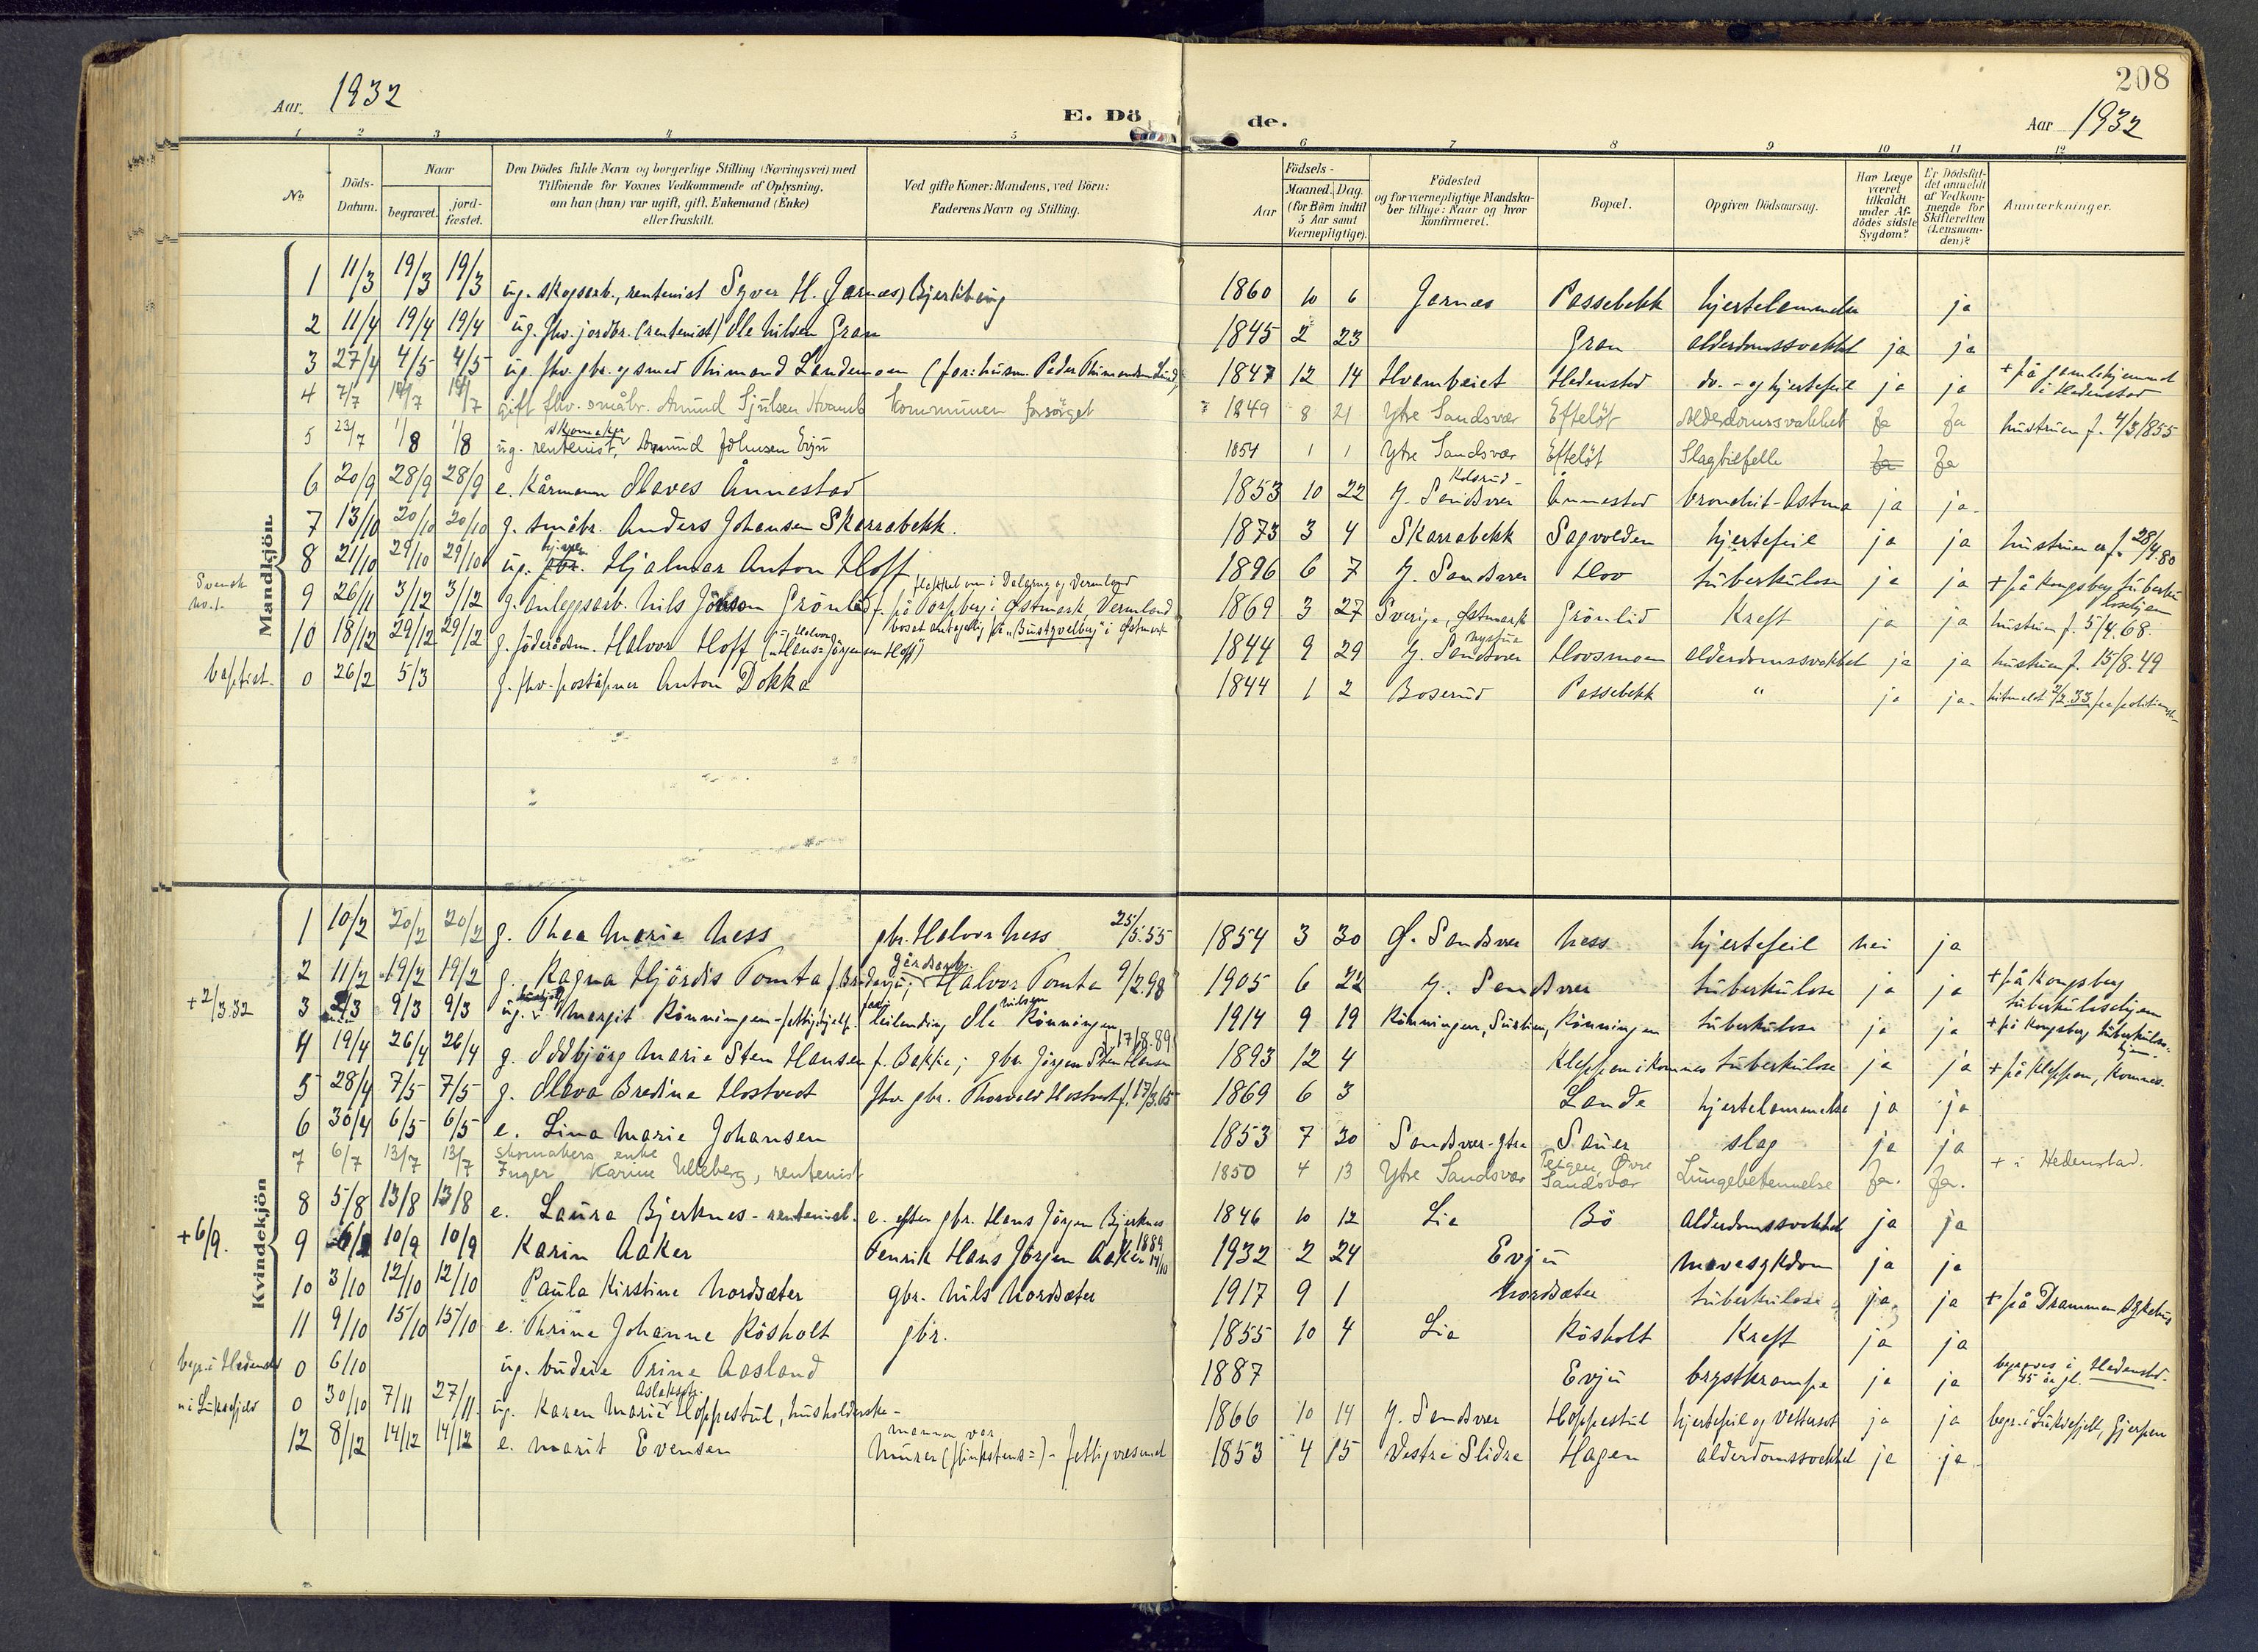 208
Aar 1932
E. Döde.
Aar 1932
1 2 3 4 5 6 7 8 9 10 11 12
No
Döds-Datum.
Naar
begravet.
jordfæstet.
Den Dödes fulde Navn og borgerlige Stilling (Næringsvei) med Tilföiende for Voxnes Vedkommende af Oplysning, om han (hun) var ugift, gift, Enkemand (Enke) eller fraskilt.
Ved gifte Koner: Mandens, ved Börn: Faderens Navn og Stilling.
Födsels-
Aar
Maaned. Dag.
(for Börn indtil 5 Aar samt Værnepligtige).
Födested og for værnepligtige Mandskaber tillige: Naar og hvor konfirmeret.
Bopæl.
Opgiven Dödsaarsag.
Har Læge været tilkaldt under Afdödes sidste Sygdom?
Er Dödsfaldet anmeldt af Vedkommende for Skifteretten (Lensmanden)?
Anmærkninger.
Mandkjön.
1 11/3 19/3 19/3 ug. skogsarb., rentenist Syver H. Jarnæs, Bjerkbeng 1860 10 6 Jarnæs Passebekk hjertelammelse ja
2 11/4 19/4 19/4 ug. fhv. jordbr. (rentenist) Ole Nilsen Gran 1845 2 23 Gran alderdomssvakhet ja ja
3 27/4 4/5 4/5 ug. fhv. gbr. og smed Thimand Landemoen 1847 12 14 Hvambeiet Hedenstad do. - og hjertefeil ja ja + på gamlehjemmet i Hedenstad
4 7/7 14/7 14/7 gift fhv. småbr. Amund Sjulsen Hvamb Kommunen forsörget 1849 8 21 Ytre Sandsvær Efteløt Alderdomssvakhet Ja Ja hustruen f. 4/3 1855
5 23/7 1/8 1/8 ug. skomaker rentenist, Amund Johnsen Evju 1854 1 1 Ytre Sandsvær Efteløt Slagtilfelle Ja Ja
6 20/9 28/9 28/9 e. kårmann Olaves Ånnestad 1853 10 22 Y. Sandsvær Ånnestad bronchit-Astma ja ja
7 13/10 20/10 20/10 g. småbr. Anders Johansen Skarrabekk. 1873 3 4 Skarrabekk Sagvolden hjertefeil ja ja hustruen er f. 28/4 80
8 21/10 29/10 29/10 ug. gbr. Hjalmar Anton Hoff 1896 6 7 Y. Sandsvær Hov tuberkulose ja ja + på Kongsberg tuberkulosehjem
Svensk
9 26/11 3/12 3/12 g. anleggsarb. Nils Jönsson Grönlid f. på Torsberg i Østmark Vermland 1869 3 27 Sverige, Østmark Grönlid Kreft ja ja hustruen f. 5/4. 68.
bosat antagelig på "Bustqvelberg" i Østmark
10 18/12 29/12 29/12 g. föderådsm. Halvor Hoff 1844 9 29 Y. Sandsvær Hovsmoen alderdomssvakhet ja ja hustruen f. 15/8. 49
baptist. 0 26/2 5/3 g. fhv. poståpner Anton Dokka 1844 1 2 Boserud Passebekk " ja ja
Kvindekjön
1 10/2 20/2 20/2 g. Thea Marie Ness gbr. Halvor Ness 25/5.55 1854 3 30 Ö. Sandsvær Ness hjertefeil nei ja
2 11/2 19/2 19/2 g. Ragna Hjördis Tomta gårdsarb. Halvor Tomta 9/2.98 1905 6 22 Y. Sandsvær tuberkulose ja ja + på Kongsberg tuberkulosehjem
+ 2/3.32 3 2/3 9/3 9/3 ug. Margit Rönningen leilending Ole Nilsen Rönningen 1914 9 19 Rönningen, Rönningen tuberkulose ja ja + på Kongsberg tuberkulosehjem
4 19/4 26/4 26/4 g. Oddbjörg Marie Sten Hansen f. Bakke; gbr. Jörgen Sten Hansen f. 17/8.89 1893 12 4 Kleppen i Komnes tuberkulose ja ja + på Kleppen, Komnes
5 28/4 7/5 7/5 g. Olava Bredine Hostvedt fhv. gbr. Thorvald Hostvedt f. 17/3.65 1869 6 3 Lande hjertelammelse ja ja
6 30/4 6/5 6/5 e. Lina Marie Johansen 1853 7 30 Sandsvær-ytre Sauer slag ja ja
7 6/7 13/7 13/7 skomakers enke Inger Karine Ulleberg, rentenist 1850 4 13 Ytre Sandsvær Teigen, Øvre Sandsvær Lungebetennelse Ja. Ja. + i Hedenstad.
8 5/8 13/8 13/8 e. Laura Bjerknes - rentenist. e. efter gbr. Hans Jörgen Bjerknes 1846 10 12 Lia Bö Alderdomssvakhet ja ja
+ 6/9. 9 6/9 10/9 10/9 Karin Aaker Fenrik Hans Jörgen Aaker 1889 14/10 1932 2 24 Evju mavesykdom ja ja
10 3/10 12/10 12/10 Paula Kirstine Nordsæter gbr. Nils Nordsæter 1917 9 1 Nordsæter tuberkulose ja ja + på Drammen sykehus
11 9/10 15/10 15/10 e. Thrine Johanne Rösholt gbr. 1855 10 4 Lia Rösholt Kreft ja ja
begr. i Hedenstad 0 6/10 ug. budeie Trine Aasland 1887 Evju brystkrampe ja ja begraves i Hedenstad. 45 år gl.
" i Luksefjeld 0 30/10 7/11 27/11 ug. Karen Marie Aslaksdtr. Hoppestul, husholderske 1866 10 14 Y. Sandsvær Hoppestul hjertefeil og vattersot ja ja begr. i Luksefjell, Gjerpen
12 8/12 14/12 14/12 e. Marit Evensen mannen var murer 1853 4 15 Vestre Slidre Hagen alderdomssvakhet ja ja